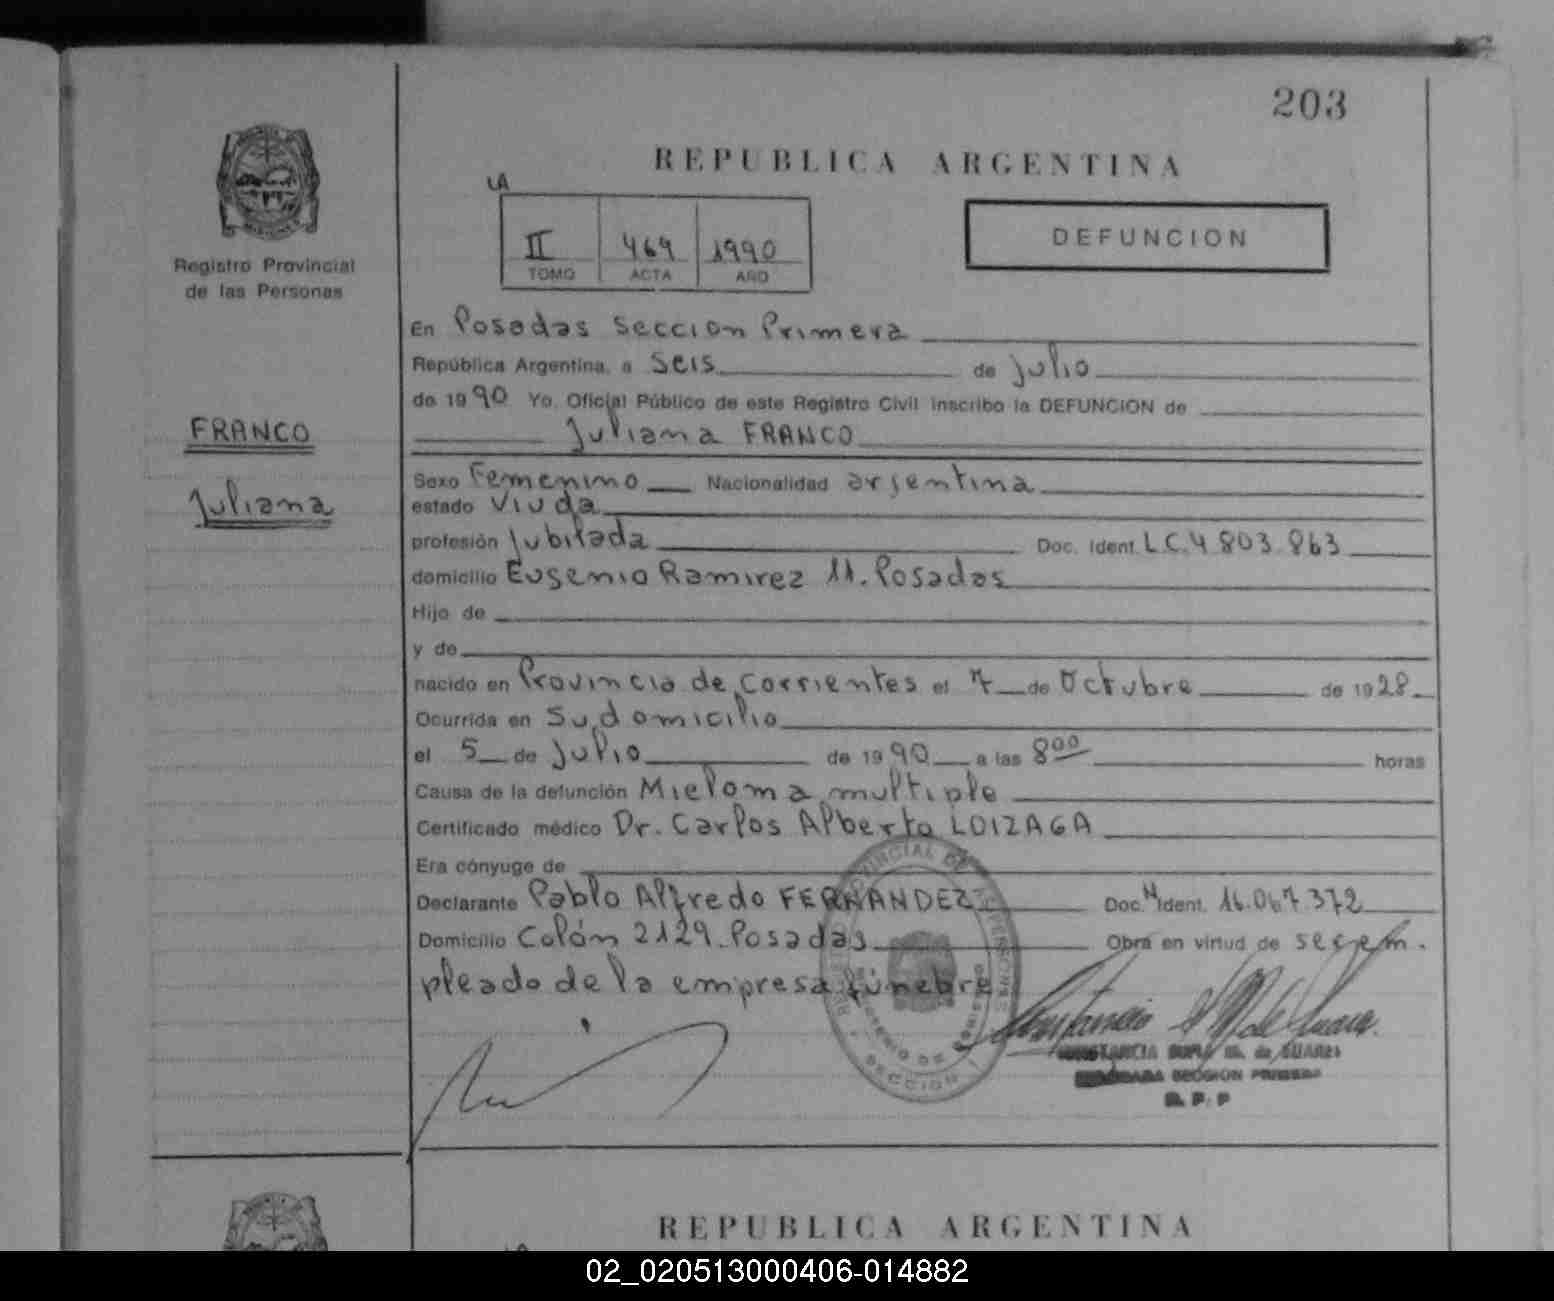 203
REPUBLICA ARGENTINA
LA
II 469 1990
TOMO ACTA AÑO
DEFUNCION
Registro Provincial
de las Personas
FRANCO
Juliana
En Posadas Seccion Primera
República Argentina, a Seis de Julio
de 1990 Yo, Oficial Público de este Registro Civil inscribo la DEFUNCION de
Juliana FRANCO
Sexo Femenino Nacionalidad argentina
estado Viuda
profesión Jubilada Doc. Ident. L.C. 4.803.863
domicilio Eugenio Ramirez 11. Posadas
Hijo de
y de
nacido en Provincia de Corrientes el 7 de Octubre de 1928
Ocurrida en Su domicilio
el 5 de Julio de 1990 a las 8 00 horas
Causa de la defunción Mieloma multiple
Certificado médico Dr. Carlos Alberto LOIZAGA
Era cónyuge de
Declarante Pablo Alfredo FERNANDEZ Doc. N Ident. 16.067.372
Domicilio Colón 2129. Posadas Obra en virtud de ser em.
pleado de la empresa fúnebre
SECCION
CONSTANCIA SOFIA M. de SUAREZ
SECCION PRIMERA
R. P. P
REPUBLICA ARGENTINA
02_020513000406-014882